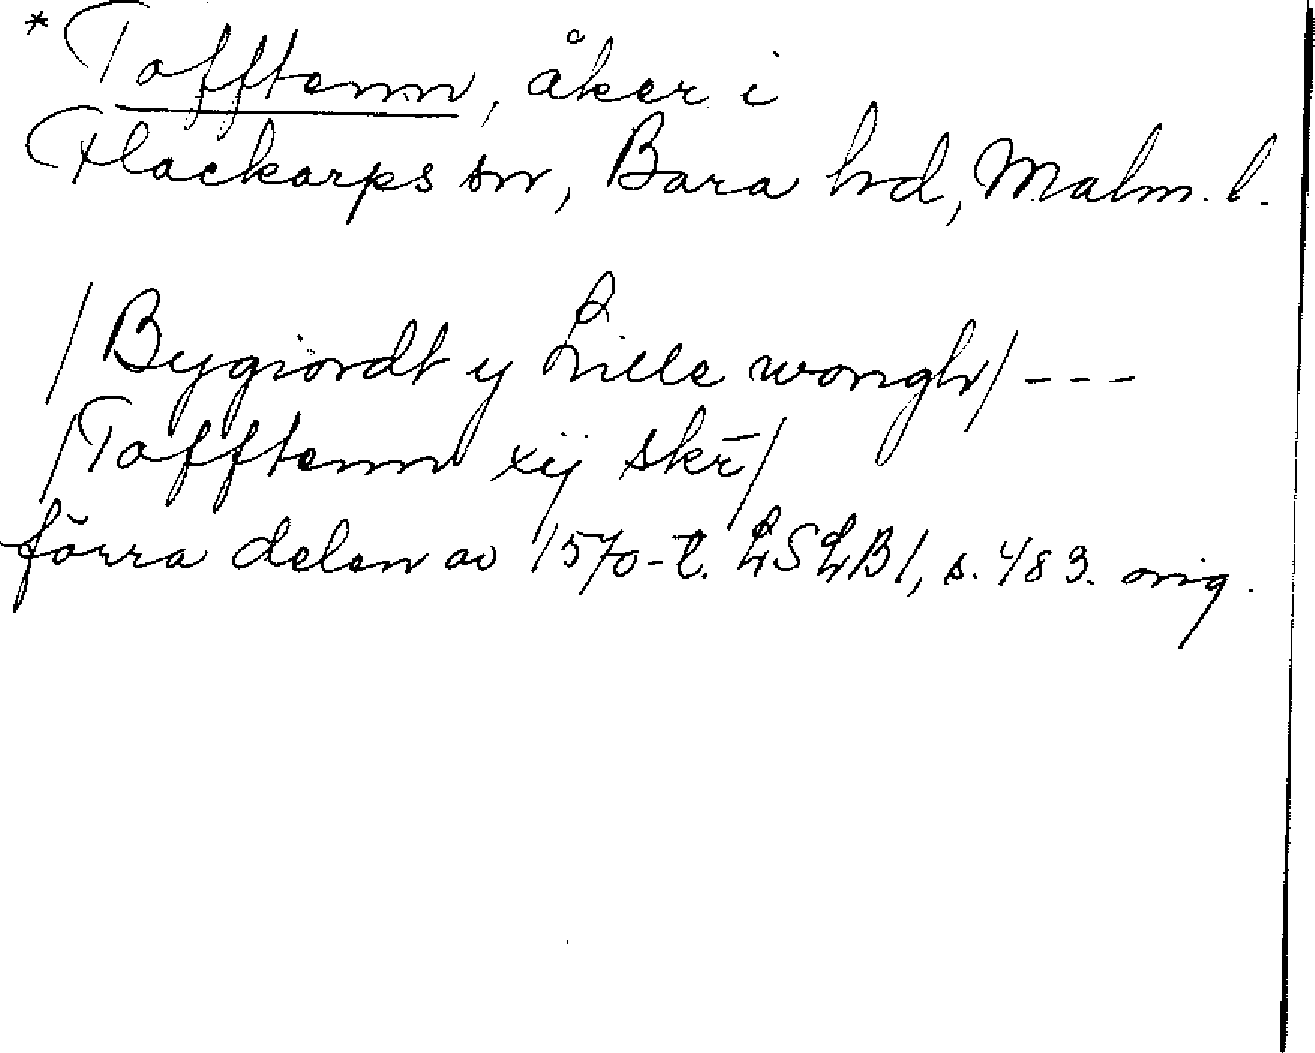 *Tofftenn, åker i
Flackarps sn, Bara hd, Malm. l.
/Bygiordt y Lille wongh/ ---
/Tofftenn xij skr̄/
förra delen av 1570-t. LSLB1, s. 483. orig.